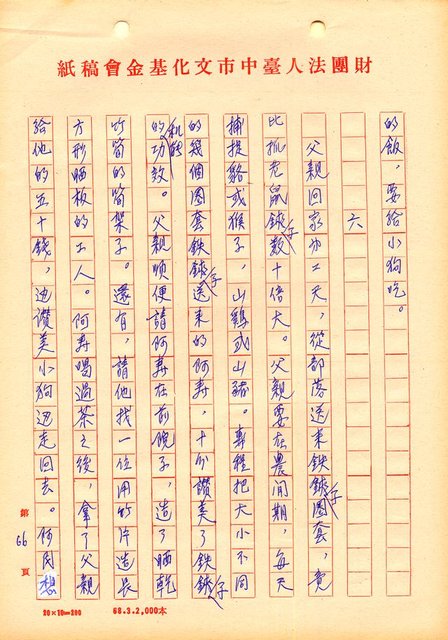 財團法人臺中市文化基金會稿紙
的飯，要給小狗吃。
六
父親回家九工天，從部落送來鉄鋏子圈套，竟
比抓老鼠鋏子数十倍大。父親要在農閒期，每天
捕捉貉或猴子，山鷄或山豬。專程把大小不同
的幾個圈套鉄鋏子送來的阿寿，十分讚美了鉄鋏子
的机能功效。父親順便請阿寿在前院子，造了晒乾
竹筍的筍架子。還有，請他找一位用竹片造長
方形晒板的工人。阿寿喝過茶之後，拿了父親
給他的五十錢，边讚美小狗边走回去。阿民想
第 66 頁
20×10=200 68.3.2,000本